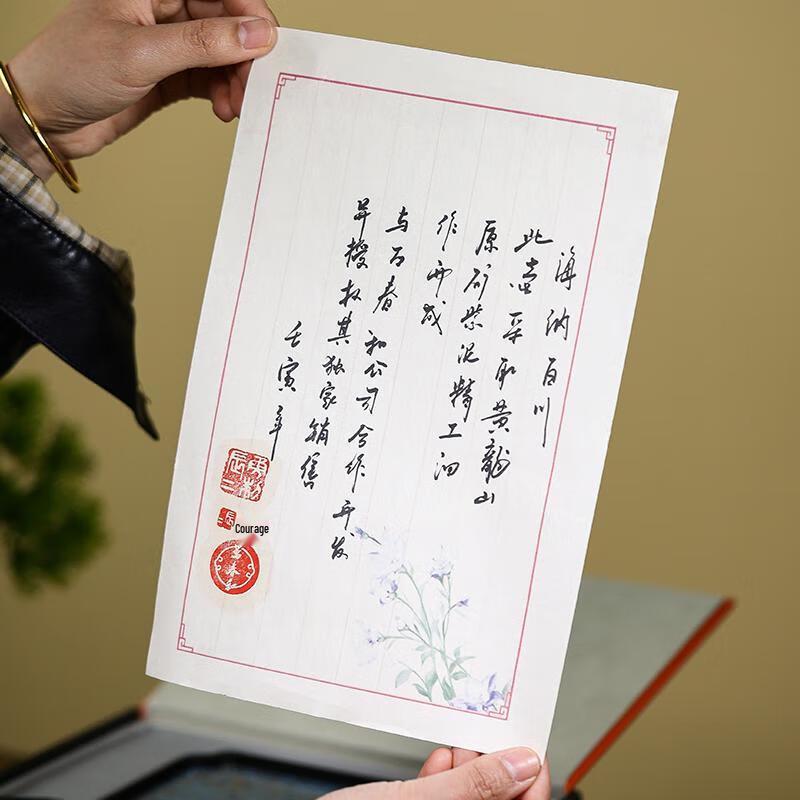 海纳百川
此壶采取黄龙山
原矿紫泥精工细
作而成
与百春和公司合作开发
并授权其独家销售
壬寅年
Courage